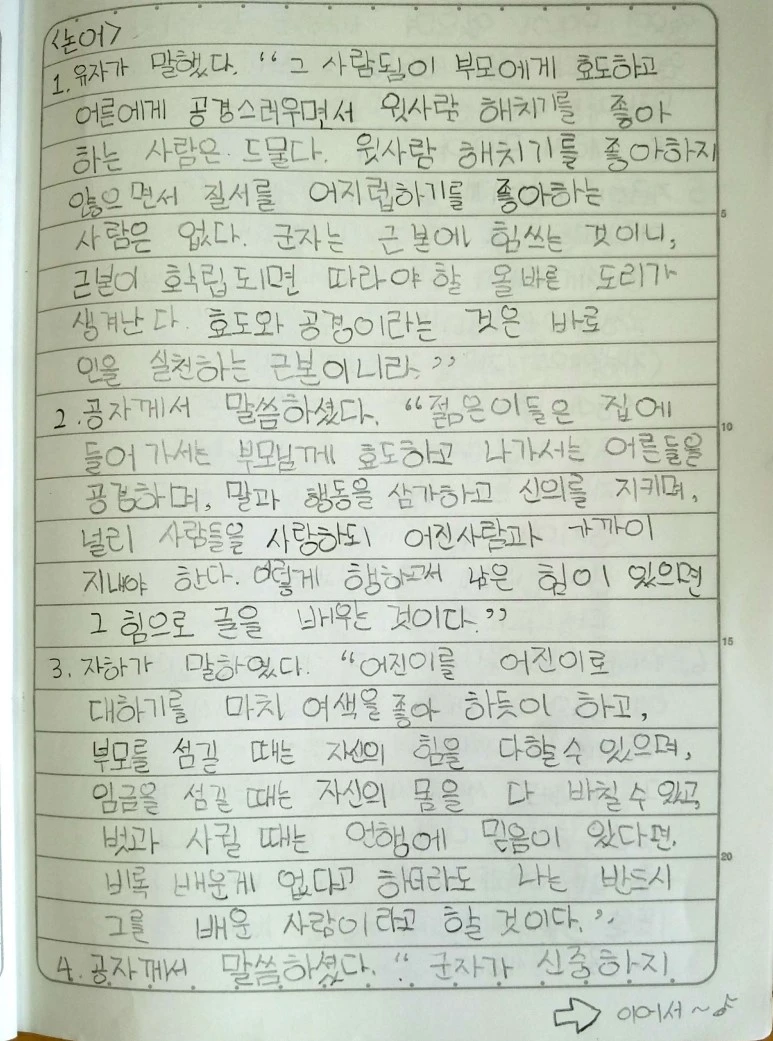 <논어>
1. 유자가 말했다. “그 사람됨이 부모에게 효도하고
어른에게 공경스러우면서 윗사람 해치기를 좋아
하는 사람은 드물다. 윗사람 해치기를 좋아하지
않으면서 질서를 어지럽하기를 좋아하는
사람은 없다. 군자는 근본에 힘쓰는 것이니,
근본이 확립되면 따라야 할 올바른 도리가
생겨난다. 효도와 공경이라는 것은 바로
인을 실천하는 근본이니라.”
2. 공자께서 말씀하셨다. “젊은이들은 집에
들어가서는 부모님께 효도하고 나가서는 어른들을
공경하며, 말과 행동을 삼가하고 신의를 지키며,
널리 사람들을 사랑하되 어진사람과 가까이
지내야 한다. 이렇게 행하고서 남은 힘이 있으면
그 힘으로 글을 배우는 것이다.”
3. 자하가 말하였다. “어진이를 어진이로
대하기를 마치 여색을 좋아 하듯이 하고,
부모를 섬길 때는 자신의 힘을 다할 수 있으며,
임금을 섬길 때는 자신의 몸을 다 바칠 수 있고,
벗과 사귈 때는 언행에 믿음이 있다면,
비록 배운게 없다고 하더라도 나는 반드시
그를 배운 사람이라고 할 것이다.”
4. 공자께서 말씀하셨다. “군자가 신중하지
⇨ 이어서~♪
5
10
15
20